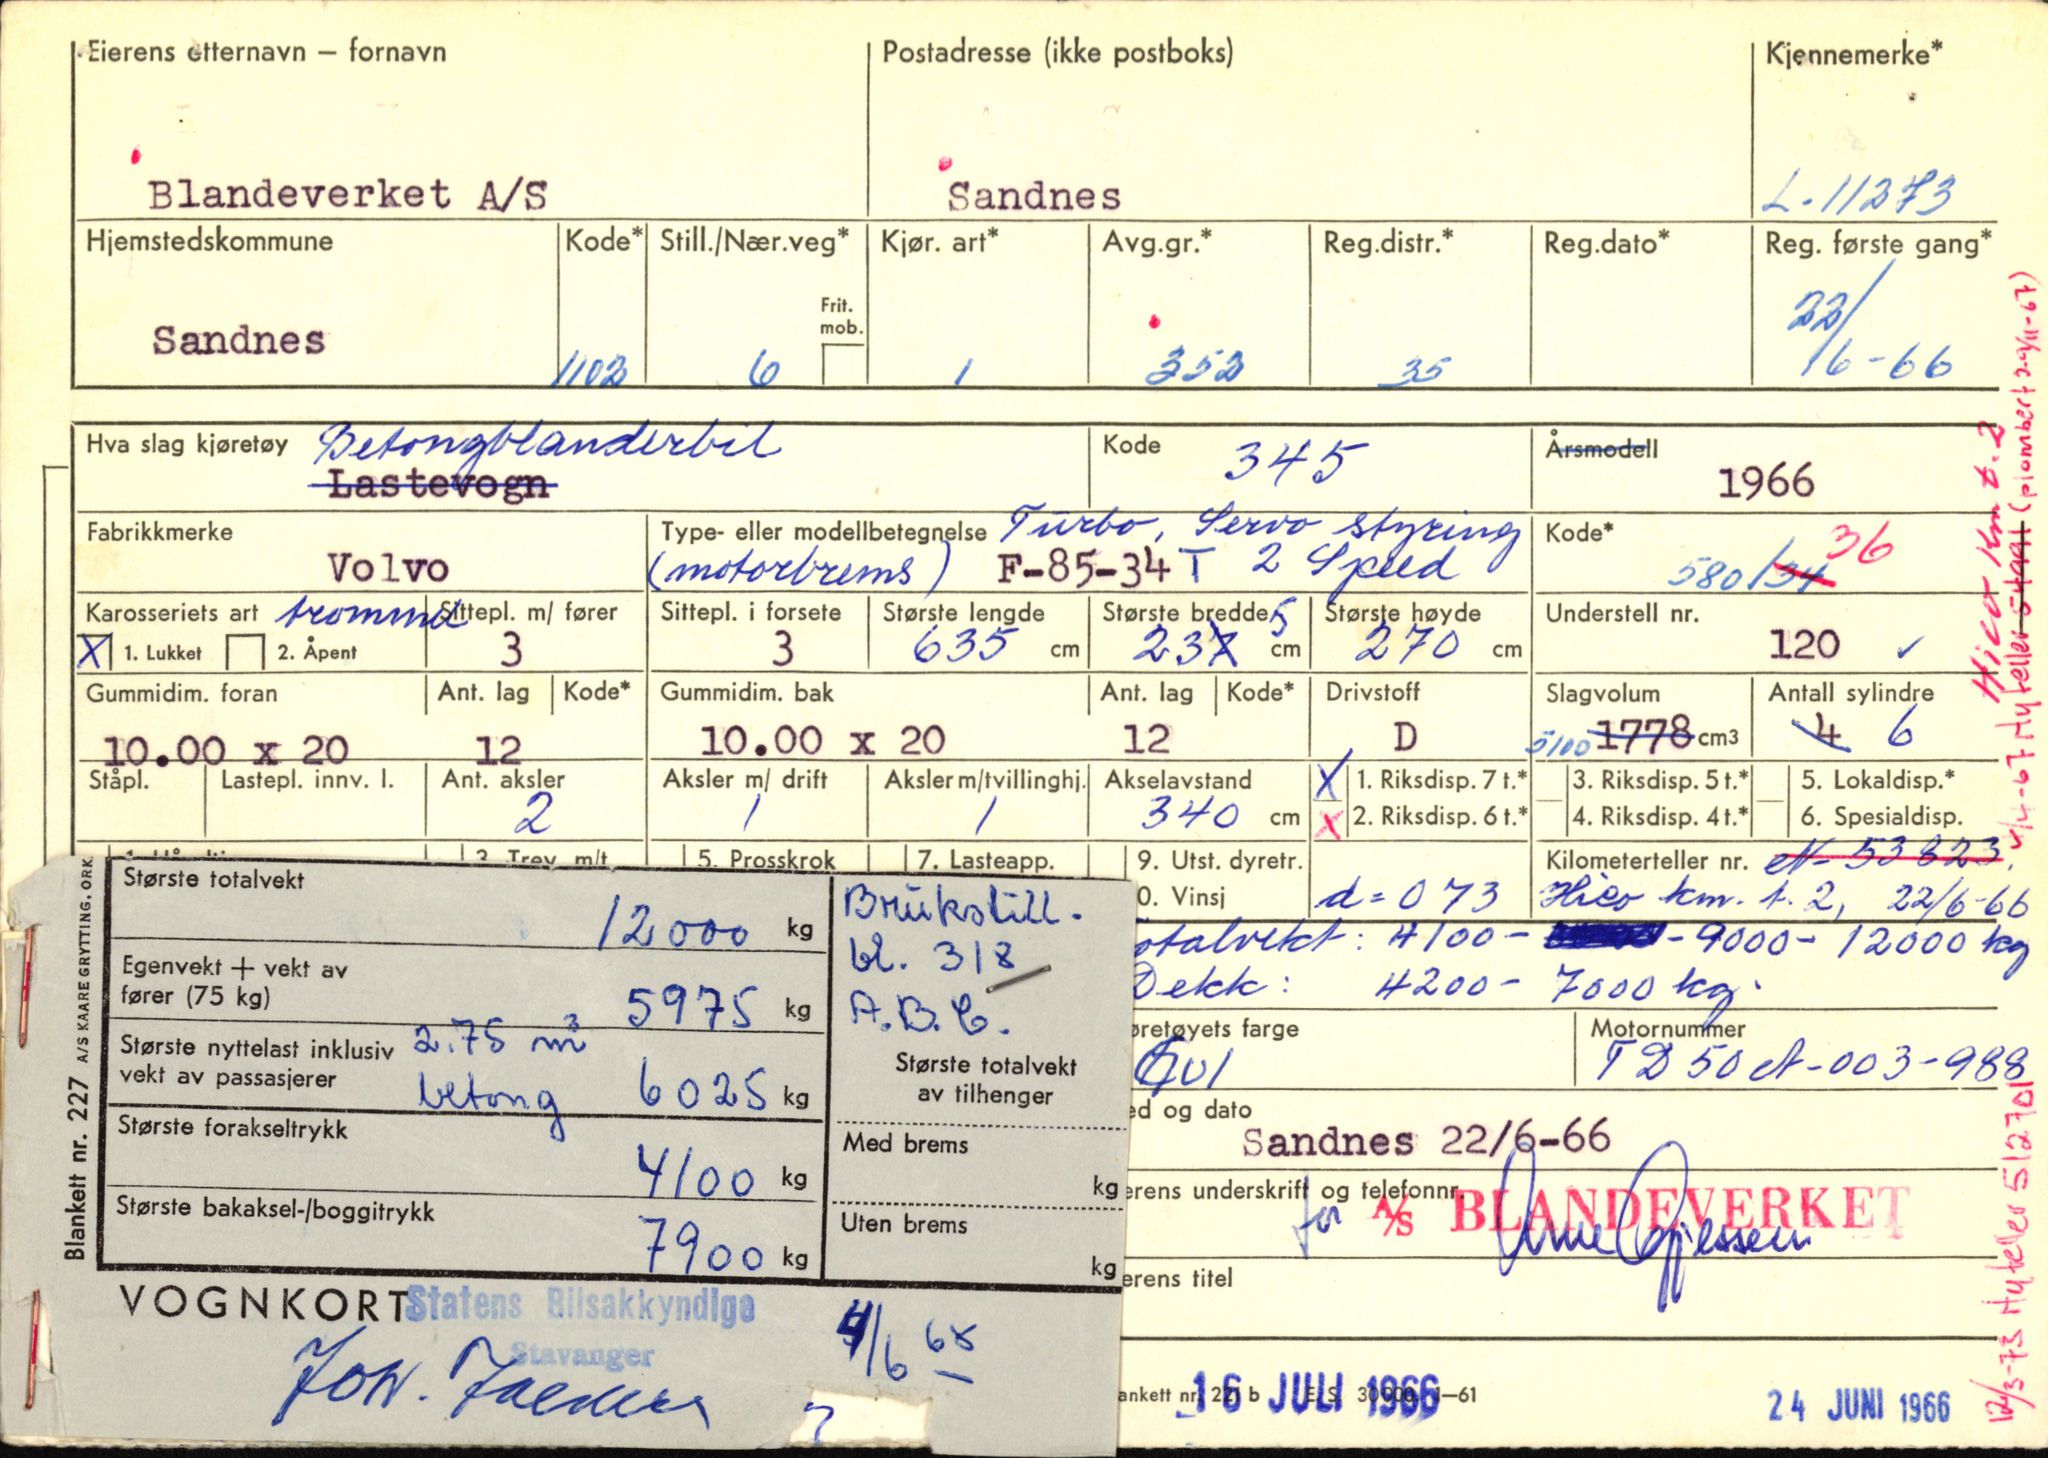 Eierens etternavn – fornavn Postadresse (ikke postboks) Kjennemerke*
Blandeverket A/S Sandnes L-11273
Hjemstedskommune Kode* Still./Nær.veg* Kjør. art* Avg.gr.* Reg.distr.* Reg.dato* Reg. første gang*
Frit. mob.
Sandnes 1102 6 1 352 35 22/6-66
Hva slag kjøretøy Betongblanderbil Kode 345 Årsmodell
Lastevogn 1966
Fabrikkmerke Type- eller modellbetegnelse Turbo, Servo styring Kode* 36
Volvo (motorbrems) F-85-34 T 2 Speed 580/34
Karosseriets art trommel Sittepl. m/ fører Sittepl. i forsete Største lengde Største bredde 5 Største høyde Understell nr.
X 1. Lukket 2. Åpent 3 3 635 cm 237 cm 270 cm 120
Gummidim. foran Ant. lag Kode* Gummidim. bak Ant. lag Kode* Drivstoff Slagvolum Antall sylindre
10.00 x 20 12 10.00 x 20 12 D 5100 1778 cm3 4 6
Ståpl. Lastepl. innv. l. Ant. aksler Aksler m/ drift Aksler m/tvillinghj. Akselavstand X 1. Riksdisp. 7 t.* 3. Riksdisp. 5 t.* 5. Lokaldisp.*
2 1 1 340 cm X 2. Riksdisp. 6 t.* 4. Riksdisp. 4 t.* 6. Spesialdisp.
5. Prosskrok 7. Lasteapp. 9. Utst. dyretr. Kilometerteller nr. N-53823
0. Vinsj d = 073 Hico km. t. 2, 22/6-66
otalvekt: 4100- -9000-12000 kg
Dekk: 4200- 7000 kg.
øretøyets farge Motornummer
Gul TD50A-003-988
ed og dato
Sandnes 22/6-66
erens underskrift og telefonnr.
for A/S BLANDEVERKET
erens titel
ankett nr. 221 b E.S. 30000. 1–61
16 JULI 1966 24 JUNI 1966
Største totalvekt 12000 kg
Egenvekt + vekt av
fører (75 kg) 5975 kg
Største nyttelast inklusiv 2.75 m3
vekt av passasjerer betong 6025 kg
Største forakseltrykk
4100 kg
Største bakaksel-/boggitrykk
7900 kg
Brukstill.
bl. 318
A.B.C.
Største totalvekt
av tilhenger
Med brems
kg
Uten brems
kg
VOGNKORT Statens Bilsakkyndige
Stavanger
4/6 68
Blankett nr. 227 A/S KAARE GRYTTING, ORK.
Hico Km t. 2
4/4-67 Ny teller 54991 (plombert 29/11-67)
12/3-73 Ny teller 512701